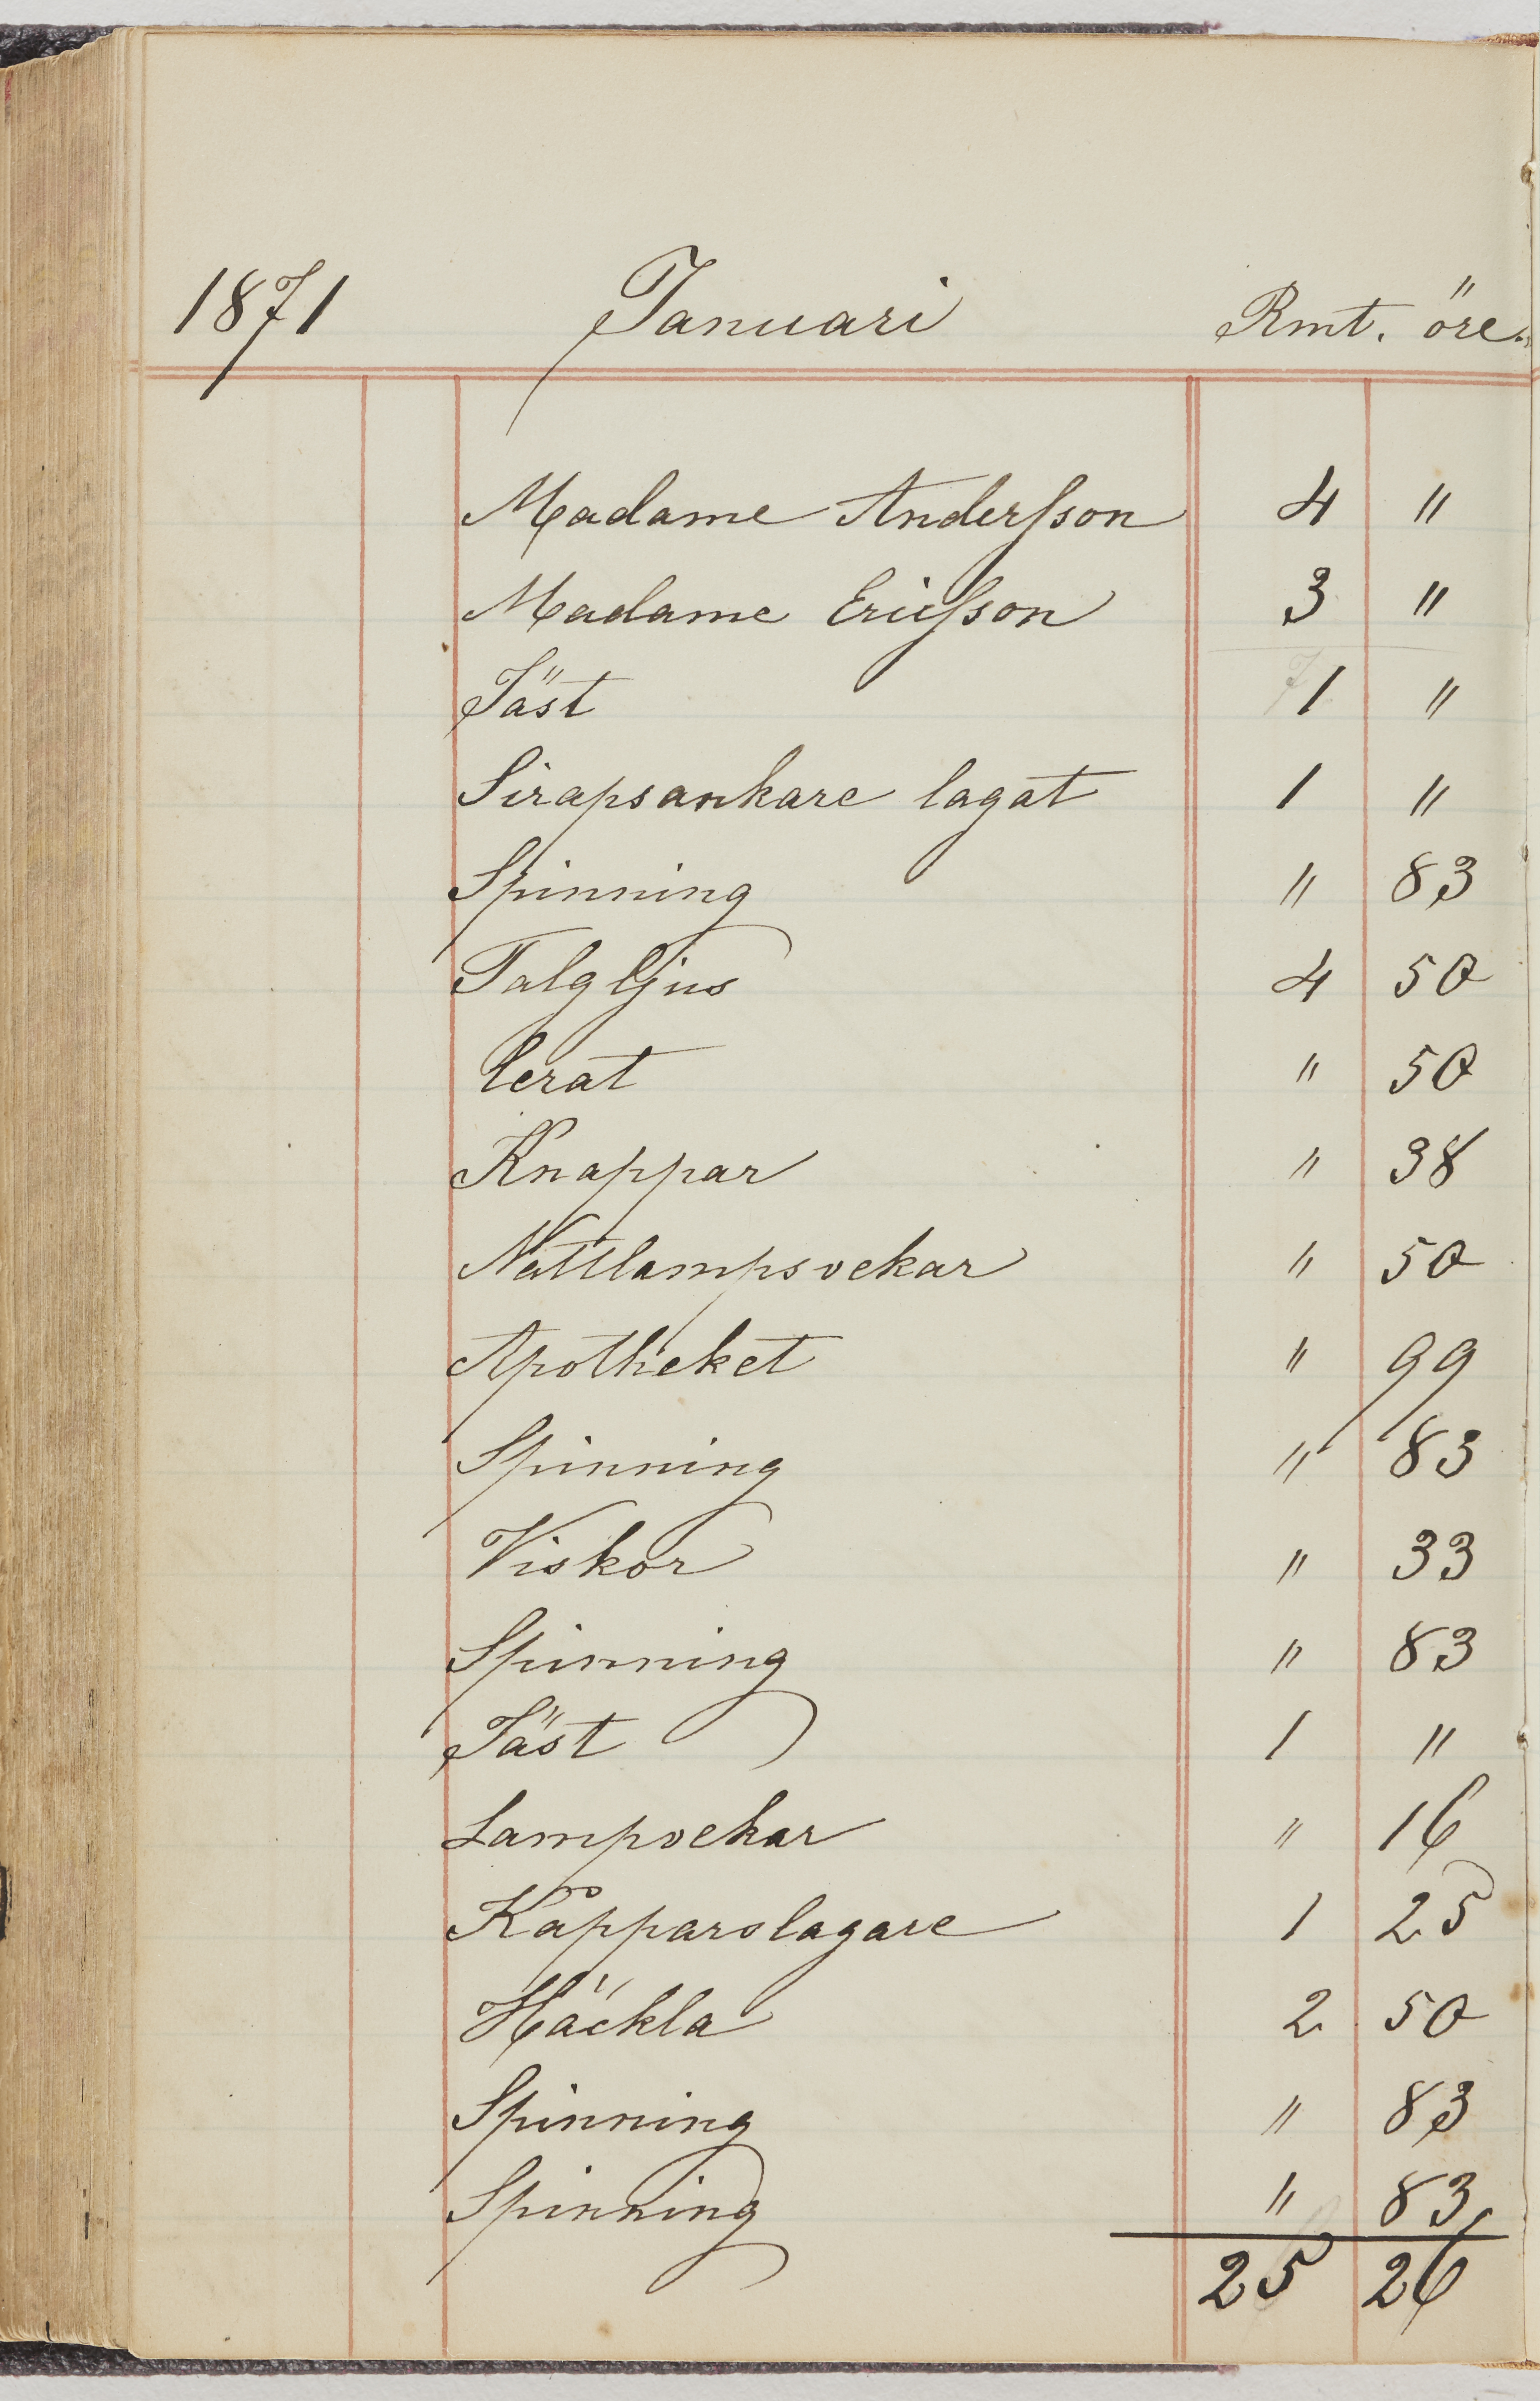 1871 Januari Rmt. öre.
Madame Andersson 4 "
Madame Ericsson 3 "
Jäst 1 "
Sirapsankare lagat 1 "
Spinning " 83
Talgljus 4 50
Cerat " 50
Knappar " 38
Nattlampsvekar " 50
Apotheket " 99
Spinning " 83
Viskor " 33
Spinning " 83
Jäst 1 "
Lampvekar " 16
Kopparslagare 1 25
Häckla 2 50
Spinning " 83
Spinning " 83
25 26